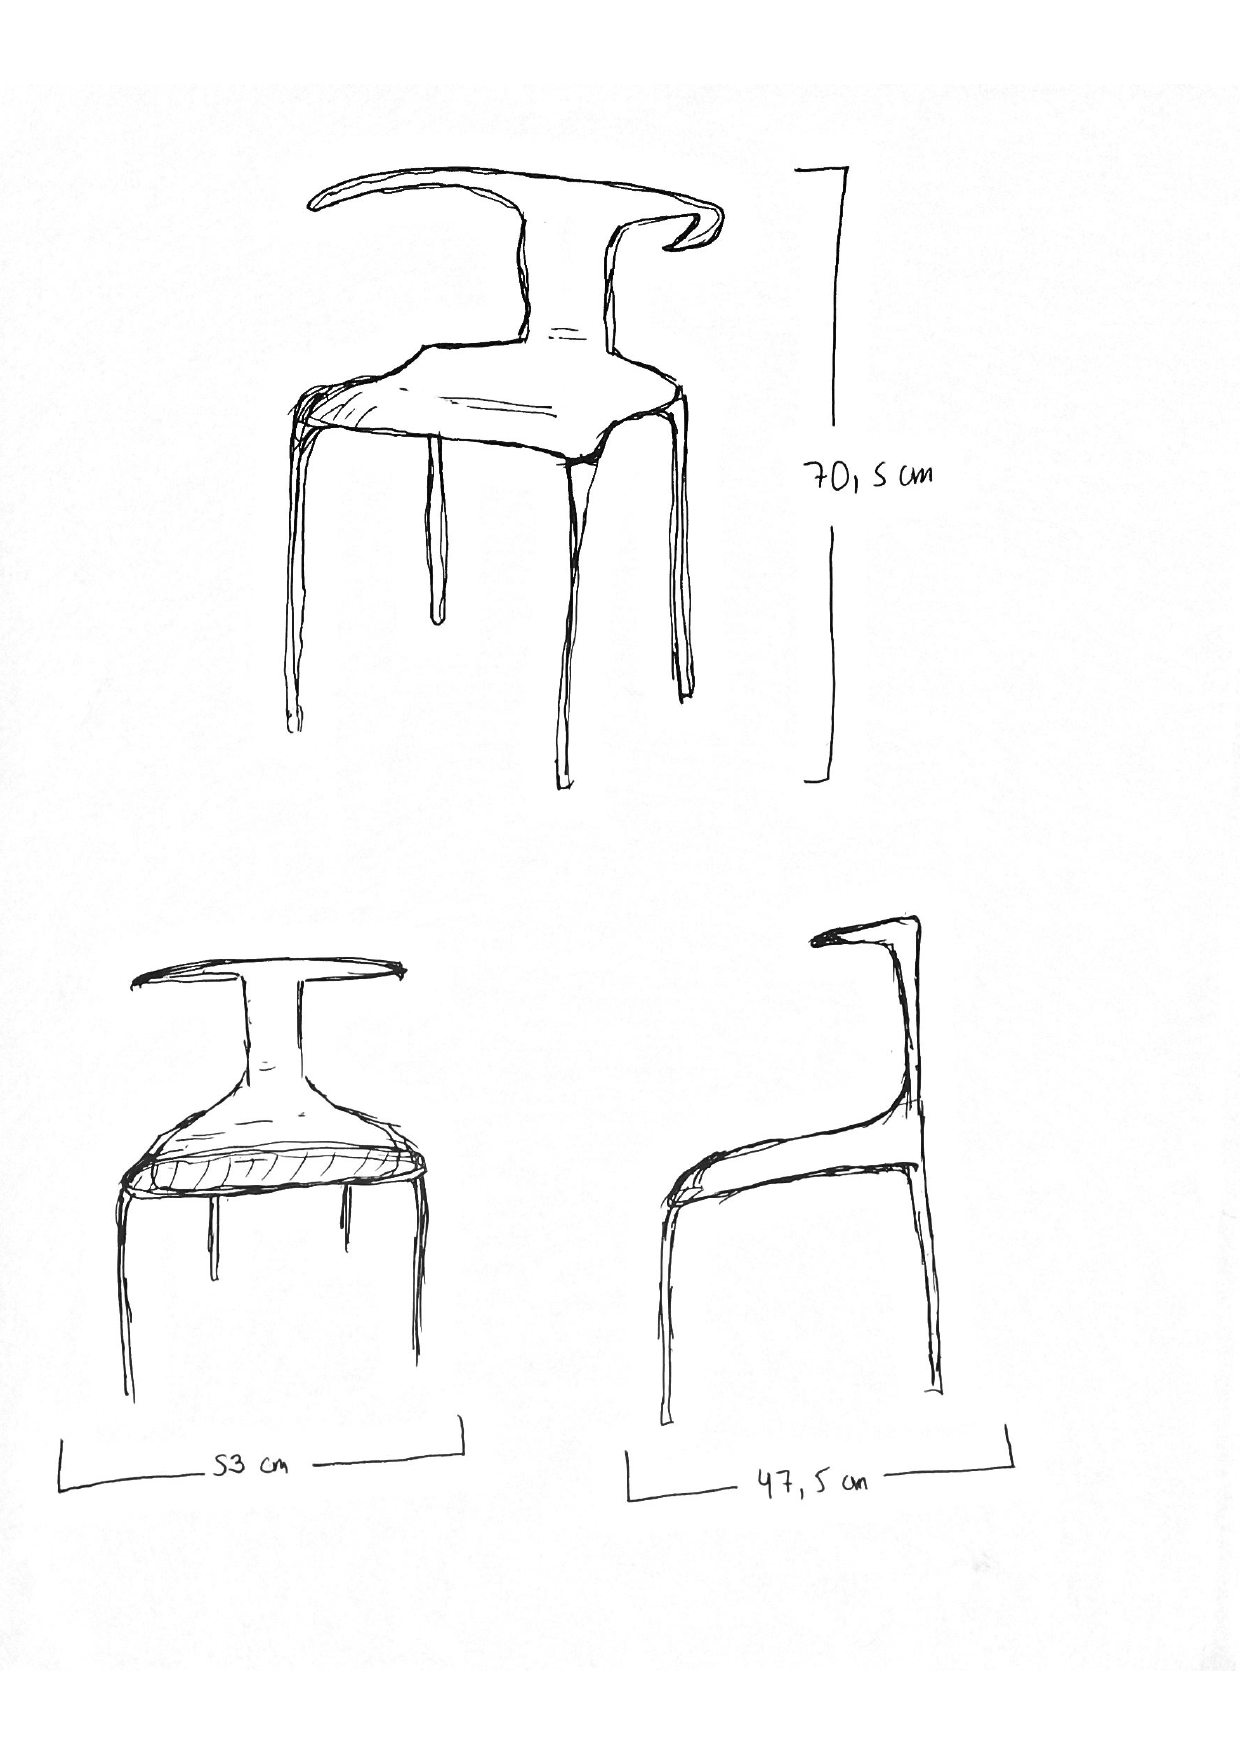 70,5 cm
53 cm
47,5 cm